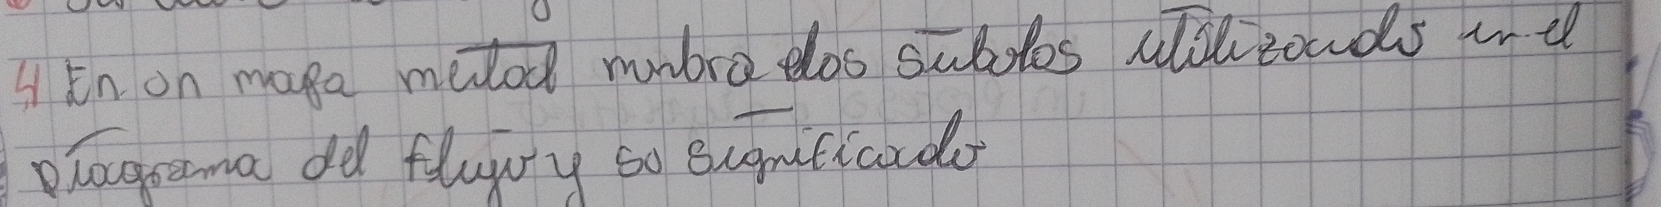 4 En on mapa metod mnbra elos subolos utilizouds en el
Diagrama del flujo y so significado